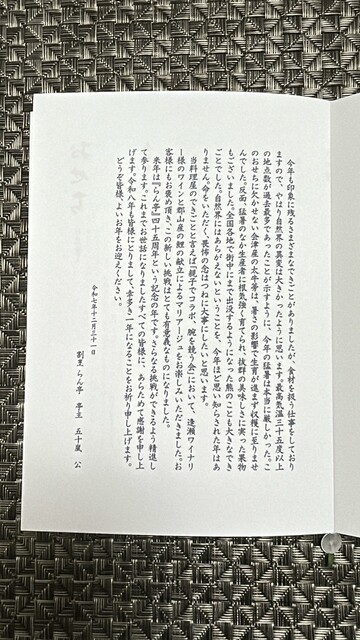 今年も印象に残るさまざまなできごとがありましたが、食材を扱う仕事をしており
ますので、やはり自然界の異変は大きかったように思います。最高気温三十五度以上
の地点数が過去最多であったことが示すように、今年の猛暑は本当に厳しかった。こ
のおせちに欠かせない会津産の太平箸は、暑さの影響で生育が進まず収穫に至りませ
んでした。反面、猛暑のなか生産者に根気強く育てられ、抜群の美味しさに実った果物
もございました。全国各地で街中にまで出没するようになった熊のことも大きなでき
ごとでした。自然界にはあらがえないということを、今年ほど思い知らされた年はあ
りません。命をいただく、畏怖の念はつねに大事にしたいと思います。
当料理屋のできごとと言えば「親子でコラボ、腕を競う会」において、逢瀬ワイナリ
ー様のワインと郡山産の鯉の献立によるマリアージュをお楽しみいただきました。お
客様にもお褒め頂き、この新しい挑戦はとても有意義なものになりました。
来年は『らん亭』四十五周年という記念の年です。さらなる挑戦ができるよう精進し
て参ります。これまでお世話になりましたすべての皆様に、あらためて感謝を申し上
げます。令和八年も皆様にとりまして、幸多き一年になることをお祈り申し上げます。
どうぞ皆様、よいお年をお迎えください。
令和七年十二月三十一日
割烹 らん亭 亭主 五十嵐 公